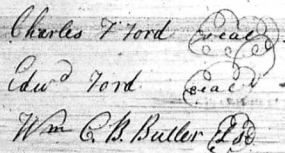 Charles T Ford Seal
Edwd Ford Seal
Wm C. B. Butler Esd